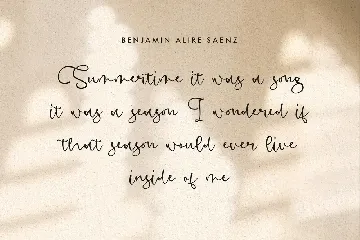 BENJAMIN ALIRE SAENZ
Summertime it was a song
it was a season I wondered if
that season would ever live
inside of me